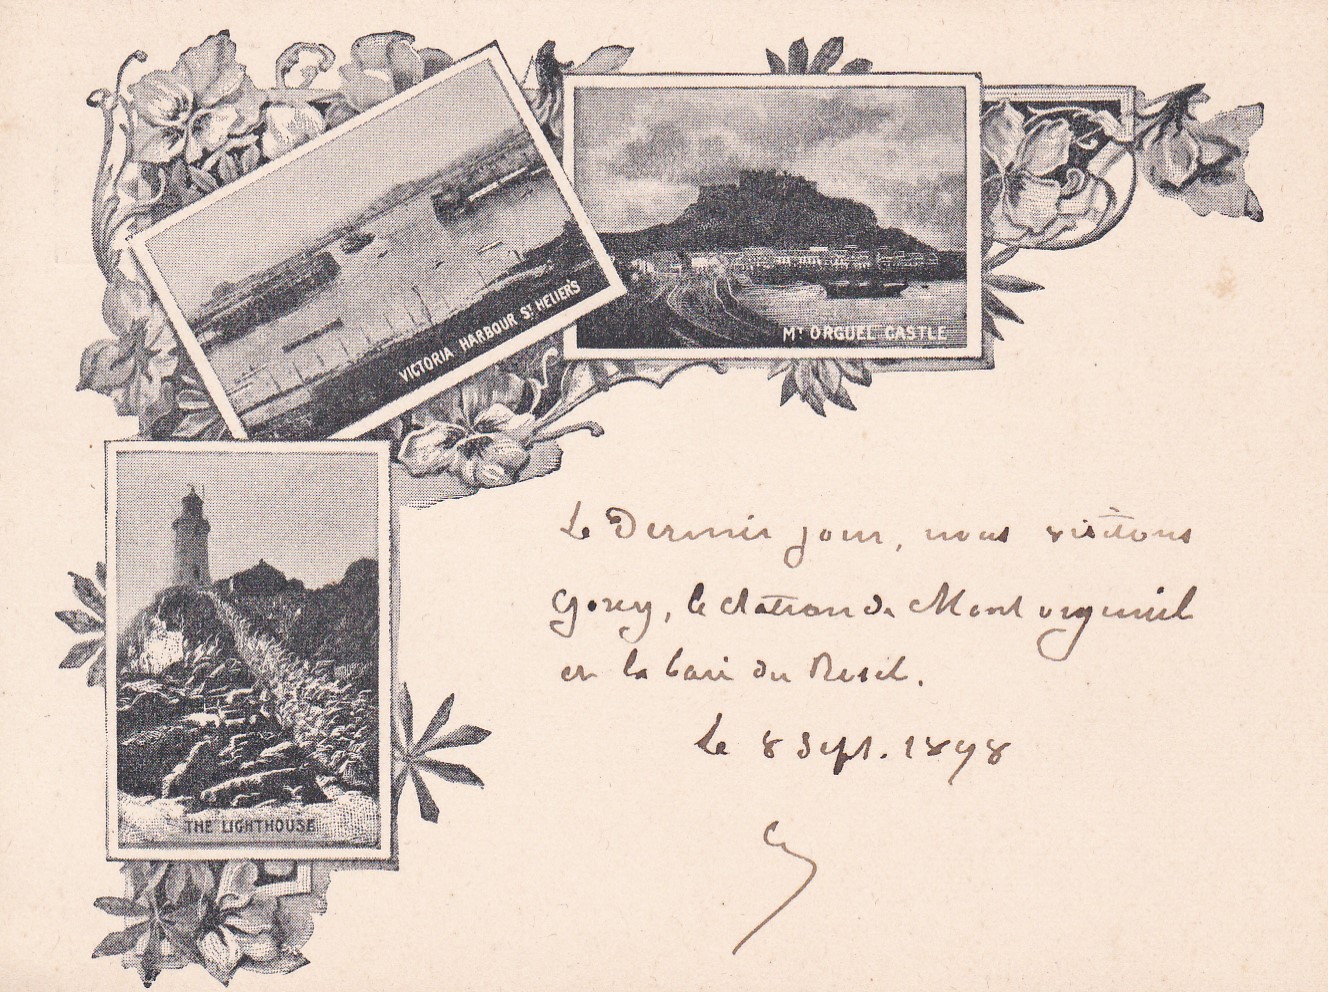 VICTORIA HARBOUR ST HELIER'S
MT ORGUEL CASTLE
THE LIGHTHOUSE
Le Dernier jour, nous visitons
Gorey, le château de Mont orgueuil
et la baie du
Le 8 Sept. 1898